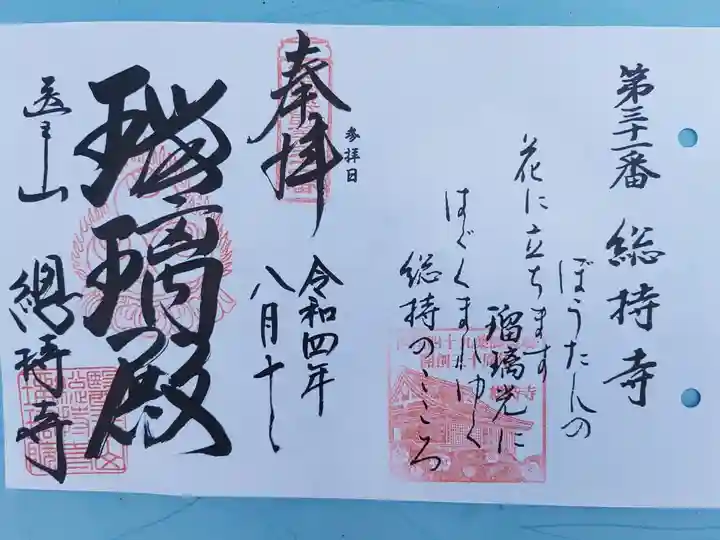 第三十一番 総持寺
ぼうたんの
花に立ちます
瑠璃光に
はぐくまれゆく
総持のこころ
奉拝
参拝日
令和四年
八月十一
瑠璃殿
医王山
總持寺